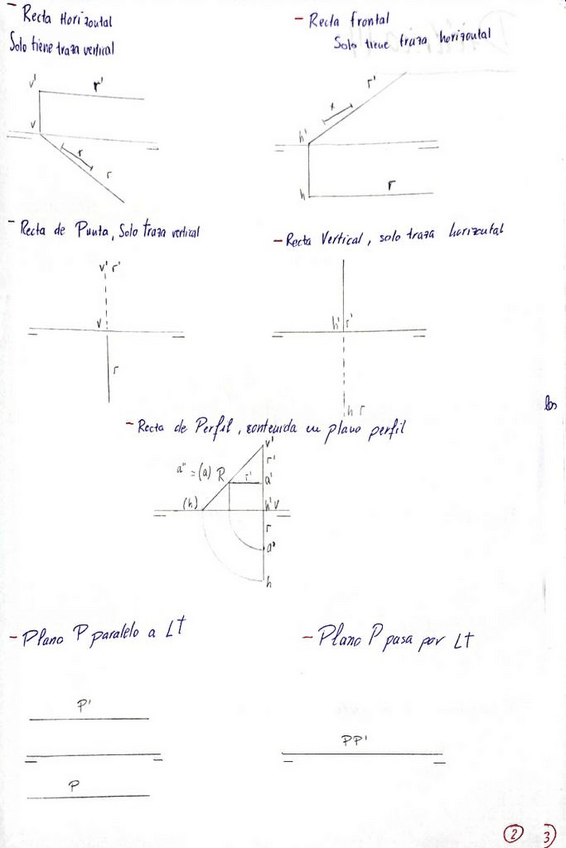 - Recta Horizontal
Solo tiene traza vertical
v' r'
v
r
r
- Recta frontal
Solo tiene traza horizontal
r'
h'
h r
- Recta de Punta, Solo traza vertical
v' r'
v
r
- Recta Vertical, solo traza horizontal
h' r'
h r
los
- Recta de Perfil, contenida en plano perfil
v'
r'
a" = (a) R r' a'
(h) h' v
r
a"
h
- Plano P paralelo a Lt
P'
P
- Plano P pasa por Lt
PP'
2 3